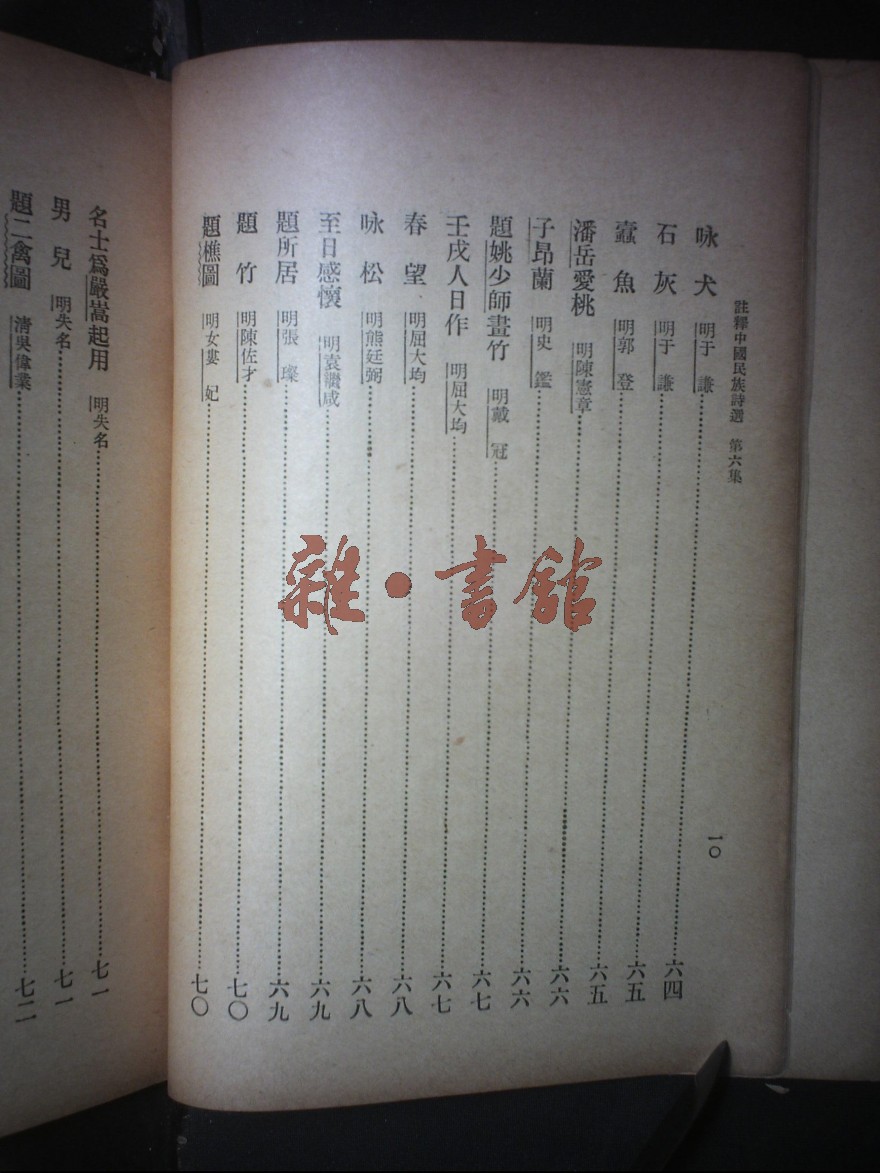 註釋中國民族詩選　第六集
一〇
咏犬　明于謙……六四
石灰　明于謙……六五
蠹魚　明郭登……六五
潘岳愛桃　明陳憲章……六六
子昂蘭　明史鑑……六六
題姚少師畫竹　明戴冠……六七
壬戌人日作　明屈大均……六七
春望　明屈大均……六八
咏松　明熊廷弼……六八
至日感懷　明袁繼咸……六九
題所居　明張璨……六九
題竹　明陳佐才……七〇
題樵圖　明女婁妃……七〇
名士爲嚴嵩起用　明失名……七一
男兒　明失名……七一
題二禽圖　清吳偉業……七二
雜·書館